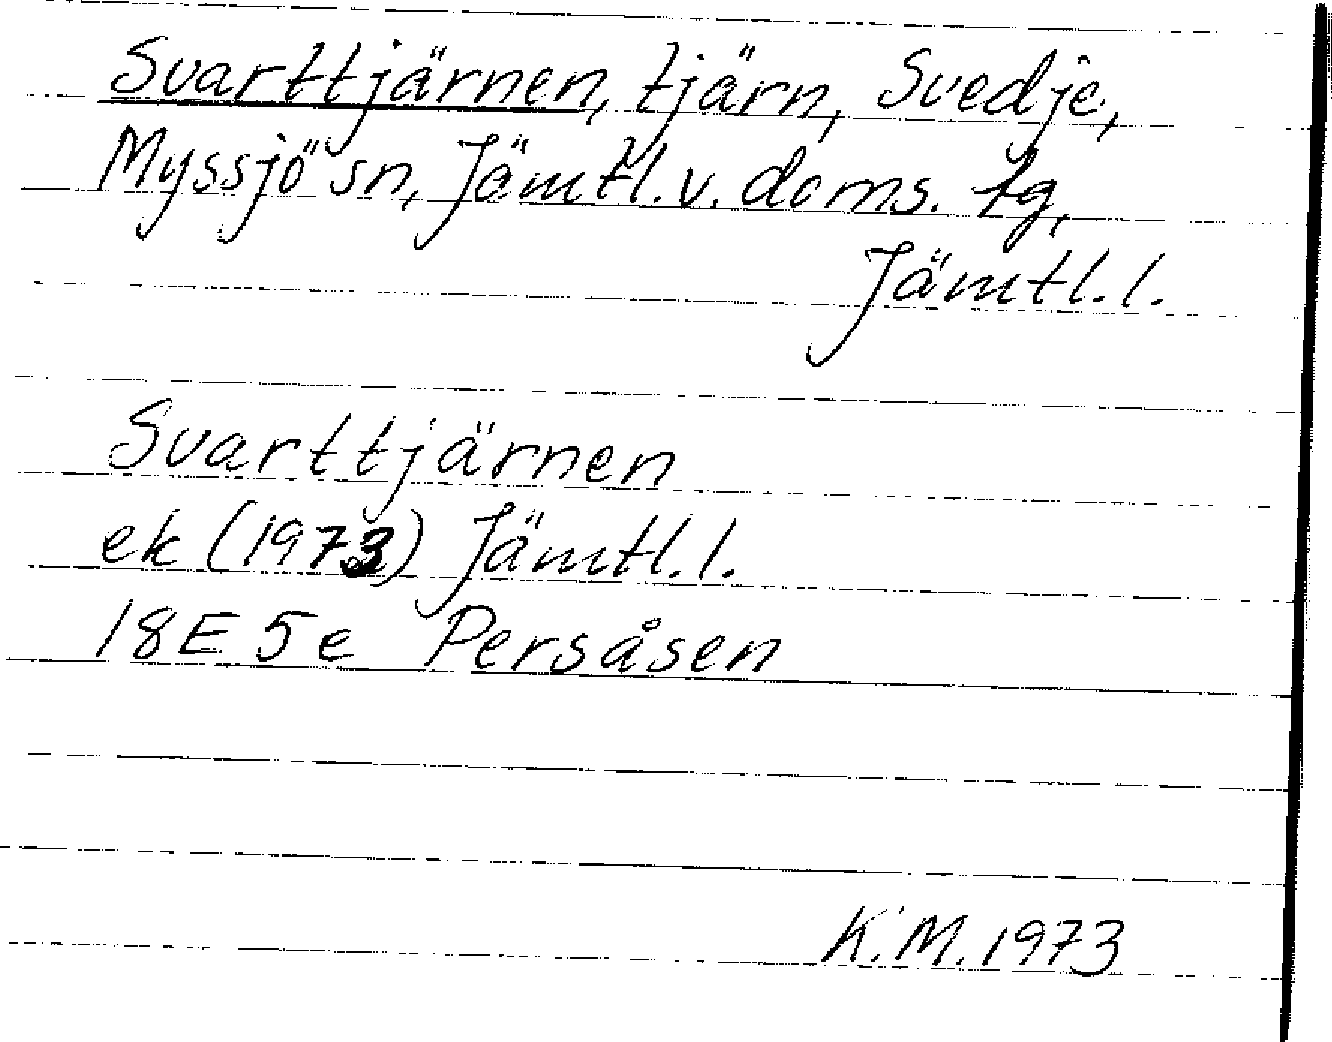 Svarttjärnen, tjärn, Svedje,
Myssjö sn, Jämtl. v. doms. tg,
Jämtl. l.
Svarttjärnen
ek (1973) Jämtl. l.
18E 5e Persåsen
K.M. 1973